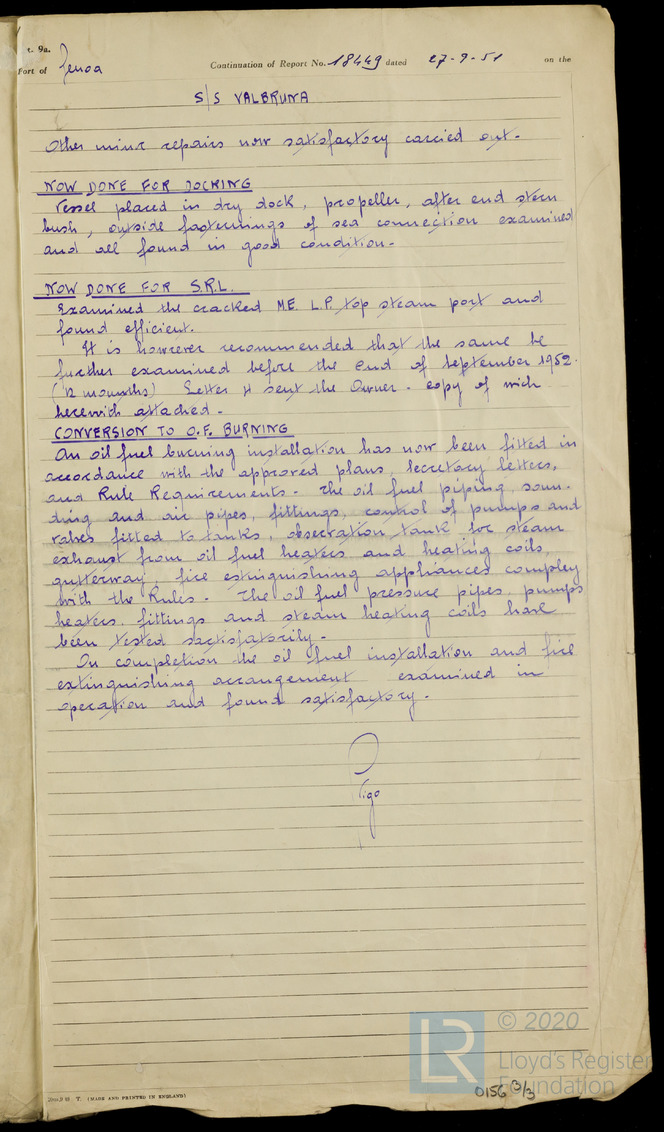 t. 9a.
Port of Genoa Continuation of Report No. 18449 dated 27-9-51 on the
S/S VALBRUNA
Other minor repairs now satisfactory carried out.
NOW DONE FOR DOCKING
Vessel placed in dry dock, propeller, after end stern
bush, outside fasternings of sea connection examined
and all found in good condition.
NOW DONE FOR S.R.L.
Examined the cracked M.E. L.P. top steam port and
found efficient.
It is however recommended that the same be
further examined before the end of September 1952.
(12 mounths) Letter sent the Owner - copy of wich
herewith attached.
CONVERSION TO O.F. BURNING
An oil fuel burning installation has now been fitted in
accordance with the approved plans, Secretary letters,
and Rule Requirements. The oil fuel piping, soun-
ding and air pipes, fittings, control of pumps and
valves fitted to tanks, observation tank for steam
exhaust from oil fuel heaters and heating coils,
gutterway, fire estinguishing appliances compley
with the Rules. The oil fuel pressure pipes, pumps
heaters, fittings and steam heating coils have
been tested sactisfatorily.
On completion the oil fuel installation and fire
extinguishing arrangement examined in
operation and found satisfactory.
© 2020
LR
Lloyd's Register
Foundation
0156 3/3
T. (MADE AND PRINTED IN ENGLAND)